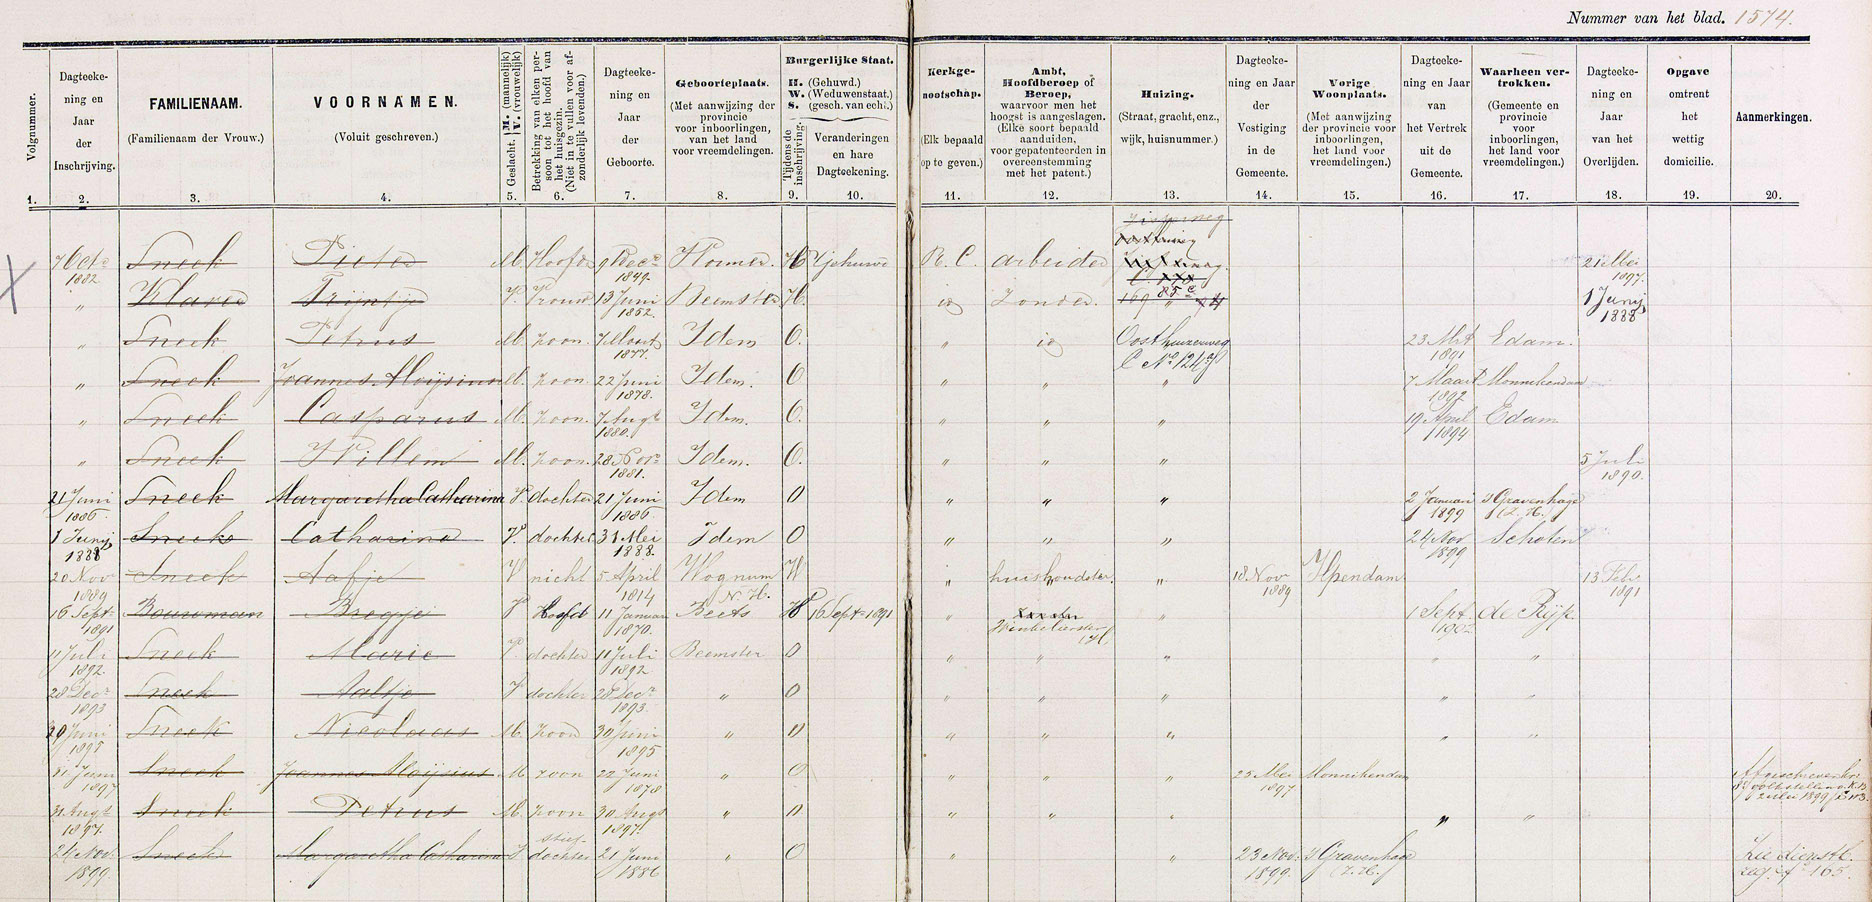 Nummer van het blad. 1574.
Volgnummer.
Dagteekening en Jaar der Inschrijving.
FAMILIENAAM.
(Familienaam der Vrouw.)
VOORNAMEN.
(Voluit geschreven.)
Geslacht. M. (mannelijk) V. (vrouwelijk)
Betrekking van elken persoon tot het hoofd van het huisgezin. (Niet in te vullen voor afzonderlijk levenden.)
Dagteekening en Jaar der Geboorte.
Geboorteplaats.
(Met aanwijzing der provincie voor inboorlingen, van het land voor vreemdelingen.)
Burgerlijke Staat.
H. (Gehuwd.)
W. (Weduwenstaat.)
S. (gesch. van echt.)
Tijdens de inschrijving.
Veranderingen en hare Dagteekening.
Kerkgenootschap.
(Elk bepaald op te geven.)
Ambt, Hoofdberoep of Beroep,
waarvoor men het hoogst is aangeslagen. (Elke soort bepaald aanduiden, voor gepatenteerden in overeenstemming met het patent.)
Huizing.
(Straat, gracht, enz., wijk, huisnummer.)
Dagteekening en Jaar der Vestiging in de Gemeente.
Vorige Woonplaats.
(Met aanwijzing der provincie voor inboorlingen, het land voor vreemdelingen.)
Dagteekening en Jaar van het Vertrek uit de Gemeente.
Waarheen vertrokken.
(Gemeente en provincie voor inboorlingen, het land voor vreemdelingen.)
Dagteekening en Jaar van het Overlijden.
Opgave omtrent het wettig domicilie.
Aanmerkingen.
1. 2. 3. 4. 5. 6. 7. 8. 9. 10. 11. 12. 13. 14. 15. 16. 17. 18. 19. 20.
7 Oct 1882 Sneek Pieter M. Hoofd 9 Decr 1849. Hormer. H Gehuwd R. C. arbeider 21 Mei 1897.
" Klaver Trijntje V. Vrouw 13 Juni 1852. Beemster H. id Zonder. 169 85 1 Junij 1888
" Sneek Petrus M. zoon. 7 Maart 1877. Idem O. " id Oosthuizerweg C No 124 23 Mrt 1891 Edam.
" Sneek Joannes Aloijsius M. zoon. 22 Juni 1878. Idem. O " " " 7 Maart 1892 Monnikendam
" Sneek Casparus M. zoon. 7 Augt 1880. Idem. O. " " " 19 April 1894 Edam
" Sneek Willem M. zoon. 28 Novr 1881. Idem. O. " " " 5 Juli 1890.
21 Juni 1886. Sneek Margaretha Catharina V. dochter 21 Juni 1886. Idem O " " " 2 Januari 1899 's Gravenhage (Z. H.)
1 Junij 1888 Sneek Catharina V. dochter 31 Mei 1888. Idem O " " " 24 Nov 1899 Schoten
20 Nov 1889 Sneek Aafje V nicht 5 April 1814 Wognum N. H. W " huishoudster. " 18 Nov 1889 Ilpendam 13 Febr 1891
16 Sept 1891 Bouwman Bregje V Hoofd 11 Januari 1870. Beets H 16 Sept 1891 " Winkelierster " 1 Sept. 1902 de Rijp.
11 Juli 1892. Sneek Marie V. dochter 11 Juli 1892 Beemster O " " " " "
28 Decr 1893 Sneek Aaltje V dochter 28 Decr 1893. " O " " " " "
29 Juni 1895 Sneek Nicolaas M. zoon 30 Juni 1895 " " " " " " "
31 Juni 1897 Sneek Joannes Aloijsius M zoon 22 Juni 1878 " O " " " 25 Mei 1897 Monnikendam
31 Augt 1897. Sneek Petrus M. zoon 30 Augt 1897. " " " " " " "
24 Nov. 1899. Sneek Margaretha Catharina V stiefdochter 21 Juni 1886 " O " " 23 Nov. 1899. 's Gravenhage (Z. H.) Zie dienstb. reg. f 165.